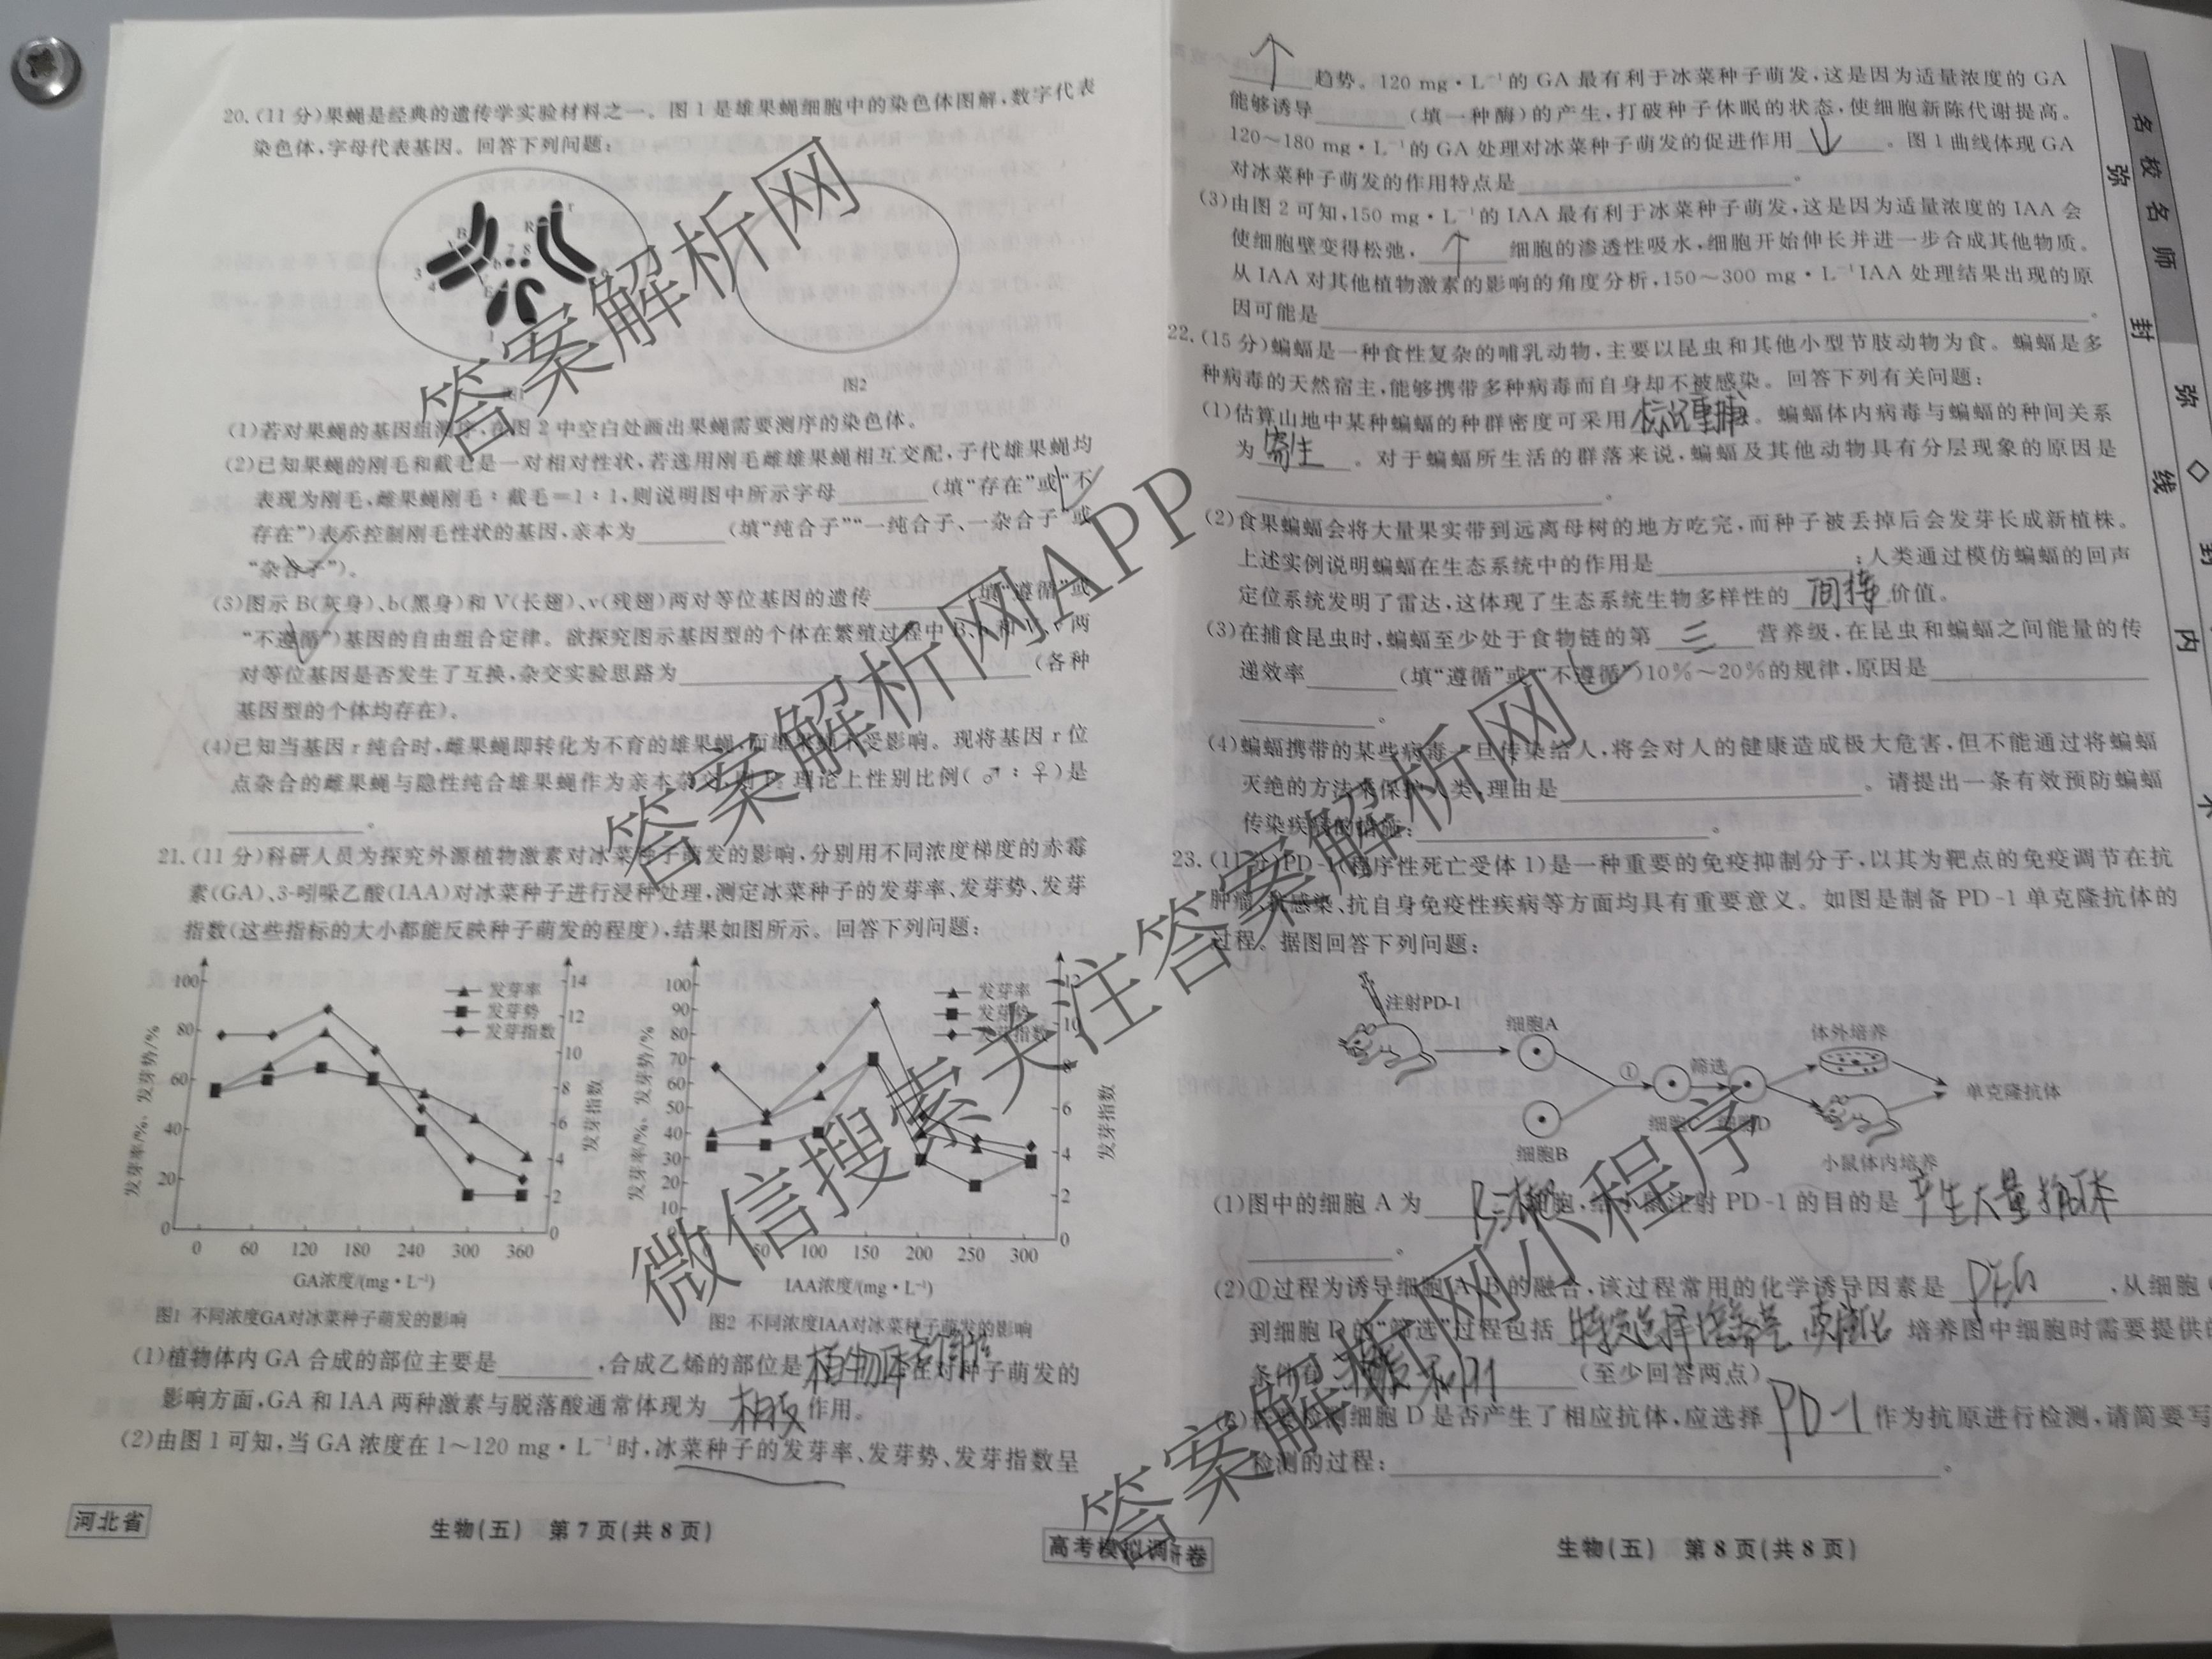 20.(11分)果蝇是经典的遗传学实验材料之一。图1是雄果蝇细胞中的染色体图解,数字代表
染色体,字母代表基因。回答下列问题:
B
R
r
7 8
b
3
4
V
E
6
1
图1
图2
(1)若对果蝇的基因组测序,在图2中空白处画出果蝇需要测序的染色体。
(2)已知果蝇的刚毛和截毛是一对相对性状,若选用刚毛雌雄果蝇相互交配,子代雄果蝇均
表现为刚毛,雌果蝇刚毛:截毛=1:1,则说明图中所示字母________(填“存在”或“不
存在”)表示控制刚毛性状的基因,亲本为________(填“纯合子”“一纯合子、一杂合子”或
“杂合子”)。
(3)图示B(灰身)、b(黑身)和V(长翅)、v(残翅)两对等位基因的遗传________(填“遵循”或
“不遵循”)基因的自由组合定律。欲探究图示基因型的个体在繁殖过程中B、b和V、v两
对等位基因是否发生了互换,杂交实验思路为________(各种
基因型的个体均存在)。
(4)已知当基因r纯合时,雌果蝇即转化为不育的雄果蝇,而雄果蝇不受影响。现将基因r位
点杂合的雌果蝇与隐性纯合雄果蝇作为亲本杂交,则F₂理论上性别比例(♂:♀)是
________。
21.(11分)科研人员为探究外源植物激素对冰菜种子萌发的影响,分别用不同浓度梯度的赤霉
素(GA)、3-吲哚乙酸(IAA)对冰菜种子进行浸种处理,测定冰菜种子的发芽率、发芽势、发芽
指数(这些指标的大小都能反映种子萌发的程度),结果如图所示。回答下列问题:
100
80
60
40
20
0
发芽率/%、发芽势/%
14
12
10
8
6
4
2
0
发芽指数
发芽率
发芽势
发芽指数
0 60 120 180 240 300 360
GA浓度/(mg·L⁻¹)
图1 不同浓度GA对冰菜种子萌发的影响
100
90
80
70
60
50
40
30
20
10
0
发芽率/%、发芽势/%
12
10
8
6
4
2
0
发芽指数
发芽率
发芽势
发芽指数
0 50 100 150 200 250 300
IAA浓度/(mg·L⁻¹)
图2 不同浓度IAA对冰菜种子萌发的影响
(1)植物体内GA合成的部位主要是________,合成乙烯的部位是植物体各部位在对种子萌发的
影响方面,GA和IAA两种激素与脱落酸通常体现为相反作用。
(2)由图1可知,当GA浓度在1~120 mg·L⁻¹时,冰菜种子的发芽率、发芽势、发芽指数呈
河北省
生物(五) 第7页(共8页)
高考模拟调研卷
↑趋势。120 mg·L⁻¹的GA最有利于冰菜种子萌发,这是因为适量浓度的GA
能够诱导________(填一种酶)的产生,打破种子休眠的状态,使细胞新陈代谢提高。
120~180 mg·L⁻¹的GA处理对冰菜种子萌发的促进作用↓。图1曲线体现GA
对冰菜种子萌发的作用特点是________。
(3)由图2可知,150 mg·L⁻¹的IAA最有利于冰菜种子萌发,这是因为适量浓度的IAA会
使细胞壁变得松弛,↑细胞的渗透性吸水,细胞开始伸长并进一步合成其他物质。
从IAA对其他植物激素的影响的角度分析,150~300 mg·L⁻¹IAA处理结果出现的原
因可能是________。
22.(15分)蝙蝠是一种食性复杂的哺乳动物,主要以昆虫和其他小型节肢动物为食。蝙蝠是多
种病毒的天然宿主,能够携带多种病毒而自身却不被感染。回答下列有关问题:
(1)估算山地中某种蝙蝠的种群密度可采用标记重捕。蝙蝠体内病毒与蝙蝠的种间关系
为寄生。对于蝙蝠所生活的群落来说,蝙蝠及其他动物具有分层现象的原因是
________。
(2)食果蝙蝠会将大量果实带到远离母树的地方吃完,而种子被丢掉后会发芽长成新植株。
上述实例说明蝙蝠在生态系统中的作用是________;人类通过模仿蝙蝠的回声
定位系统发明了雷达,这体现了生态系统生物多样性的间接价值。
(3)在捕食昆虫时,蝙蝠至少处于食物链的第三营养级,在昆虫和蝙蝠之间能量的传
递效率________(填“遵循”或“不遵循”)10%~20%的规律,原因是________
________。
(4)蝙蝠携带的某些病毒一旦传染给人,将会对人的健康造成极大危害,但不能通过将蝙蝠
灭绝的方法来保护人类,理由是________。请提出一条有效预防蝙蝠
传染疾病的措施:________。
23.(11分)PD-1(程序性死亡受体1)是一种重要的免疫抑制分子,以其为靶点的免疫调节在抗
肿瘤、抗感染、抗自身免疫性疾病等方面均具有重要意义。如图是制备PD-1单克隆抗体的
过程。据图回答下列问题:
注射PD-1
细胞A
细胞B
①
细胞C
筛选
细胞D
体外培养
小鼠体内培养
单克隆抗体
(1)图中的细胞A为________细胞,给小鼠注射PD-1的目的是产生大量抗体
________。
(2)①过程为诱导细胞A、B的融合,该过程常用的化学诱导因素是PEG,从细胞
到细胞D的“筛选”过程包括特定选择培养基 培养图中细胞时需要提供的
条件有________(至少回答两点)
检测细胞D是否产生了相应抗体,应选择PD-1作为抗原进行检测,请简要写
检测的过程:________。
生物(五) 第8页(共8页)
名校名师
弥 封 线 内
弥 封
答案解析网
答案解析网APP
微信搜索关注答案解析网
答案解析网小程序